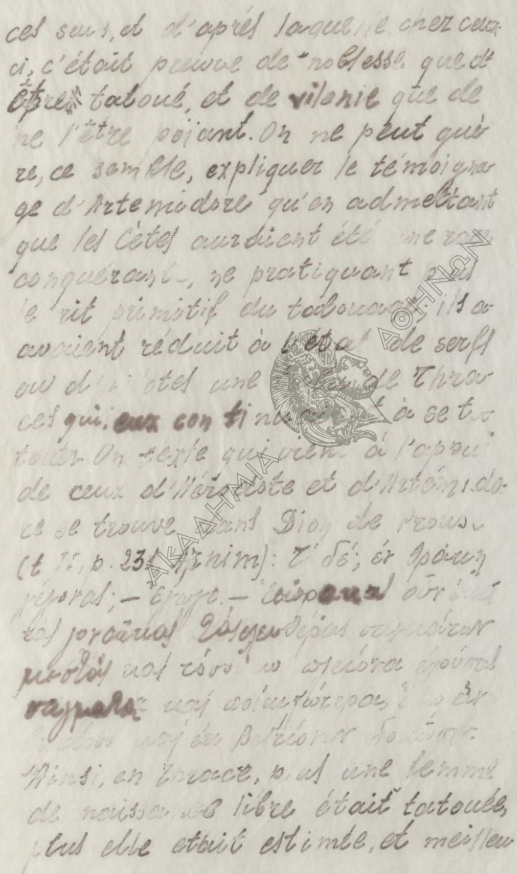 ces seurs, et d'après laquelle chez ceux-
ci, c'était preuve de noblesse que d'
être tatoué, et de vilenie que de
ne l'être point. On ne peut guè-
re, ce semble, expliquer le témoigna-
ge d'Artemidore qu'en admettant
que les Gètes auraient été une race
conquérante, ne pratiquant pas
le rit primitif du tatouage: ils a-
avaient réduit à l'état de serfs
ou d'ilotes une de Thra-
ces qui, eux continuaient à se ta-
touer. Un texte qui vient à l'appui
de ceux d'Hérodote et d'Artémido-
re se trouve dans Dion de Pruse
(t II, p. 23 Arnim): Τί δέ; ἐν Θράκῃ
γέγονας; — Ἔγωγε. — Ἑώρακας οὖν ἐκεῖ
τὰς γυναῖκας τὰς ἐλευθέρας στιγμάτων
μεστὰς καὶ τόσῳ πλείονα ἐχούσας
στίγματα καὶ ποικιλώτερα, ἐκ
Ainsi, en Thrace, plus une femme
de naissance libre était tatouée,
plus elle était estimée, et meilleu
ΑΚΑΔΗΜΙΑ ΑΘΗΝΩΝ